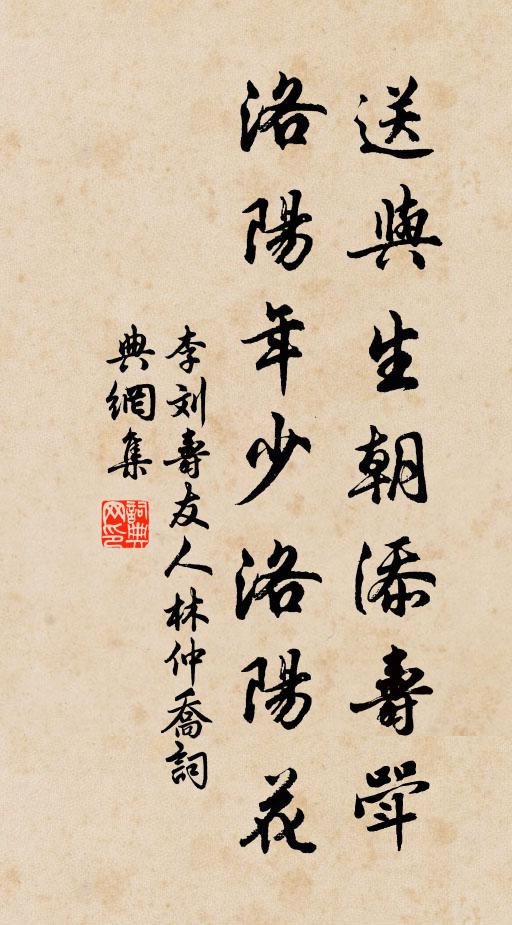 送與生朝添壽斝
洛陽年少洛陽花
李刘壽友人林仲喬詞
典網集
詞典網印